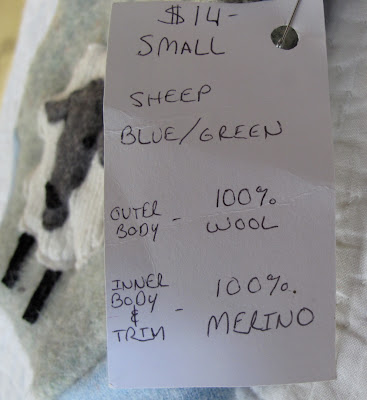 $14-
SMALL
SHEEP
BLUE/GREEN
OUTER BODY - 100% WOOL
INNER BODY & TRIM - 100% MERINO